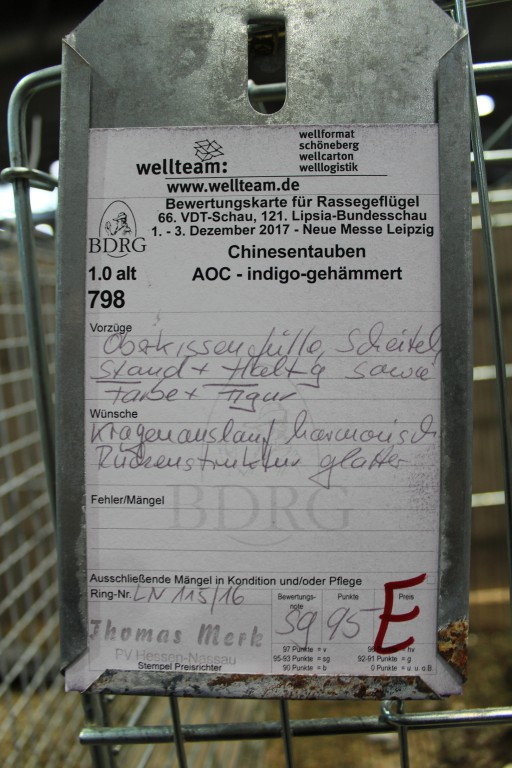 wellteam:
wellformat
schöneberg
wellcarton
welllogistik
www.wellteam.de
Bewertungskarte für Rassegeflügel
66. VDT-Schau, 121. Lipsia-Bundesschau
1. - 3. Dezember 2017 - Neue Messe Leipzig
BDRG
Chinesentauben
1.0 alt
AOC - indigo-gehämmert
798
Vorzüge
Oberkissenfülle, Scheitel,
Stand + Haltg sowie
Farbe + Figur
Wünsche
Kragenauslauf harmonisch
Rückenstruktur glatter
Fehler/Mängel
BDRG
Ausschließende Mängel in Kondition und/oder Pflege
Ring-Nr. LN 115/16
Bewertungs-
note
Punkte
Preis
sg 95 E
Thomas Merk
PV Hessen-Nassau
Stempel Preisrichter
97 Punkte = v
hv
95-93 Punkte = sg
92-91 Punkte = g
90 Punkte = b
0 Punkte = u u.o.B